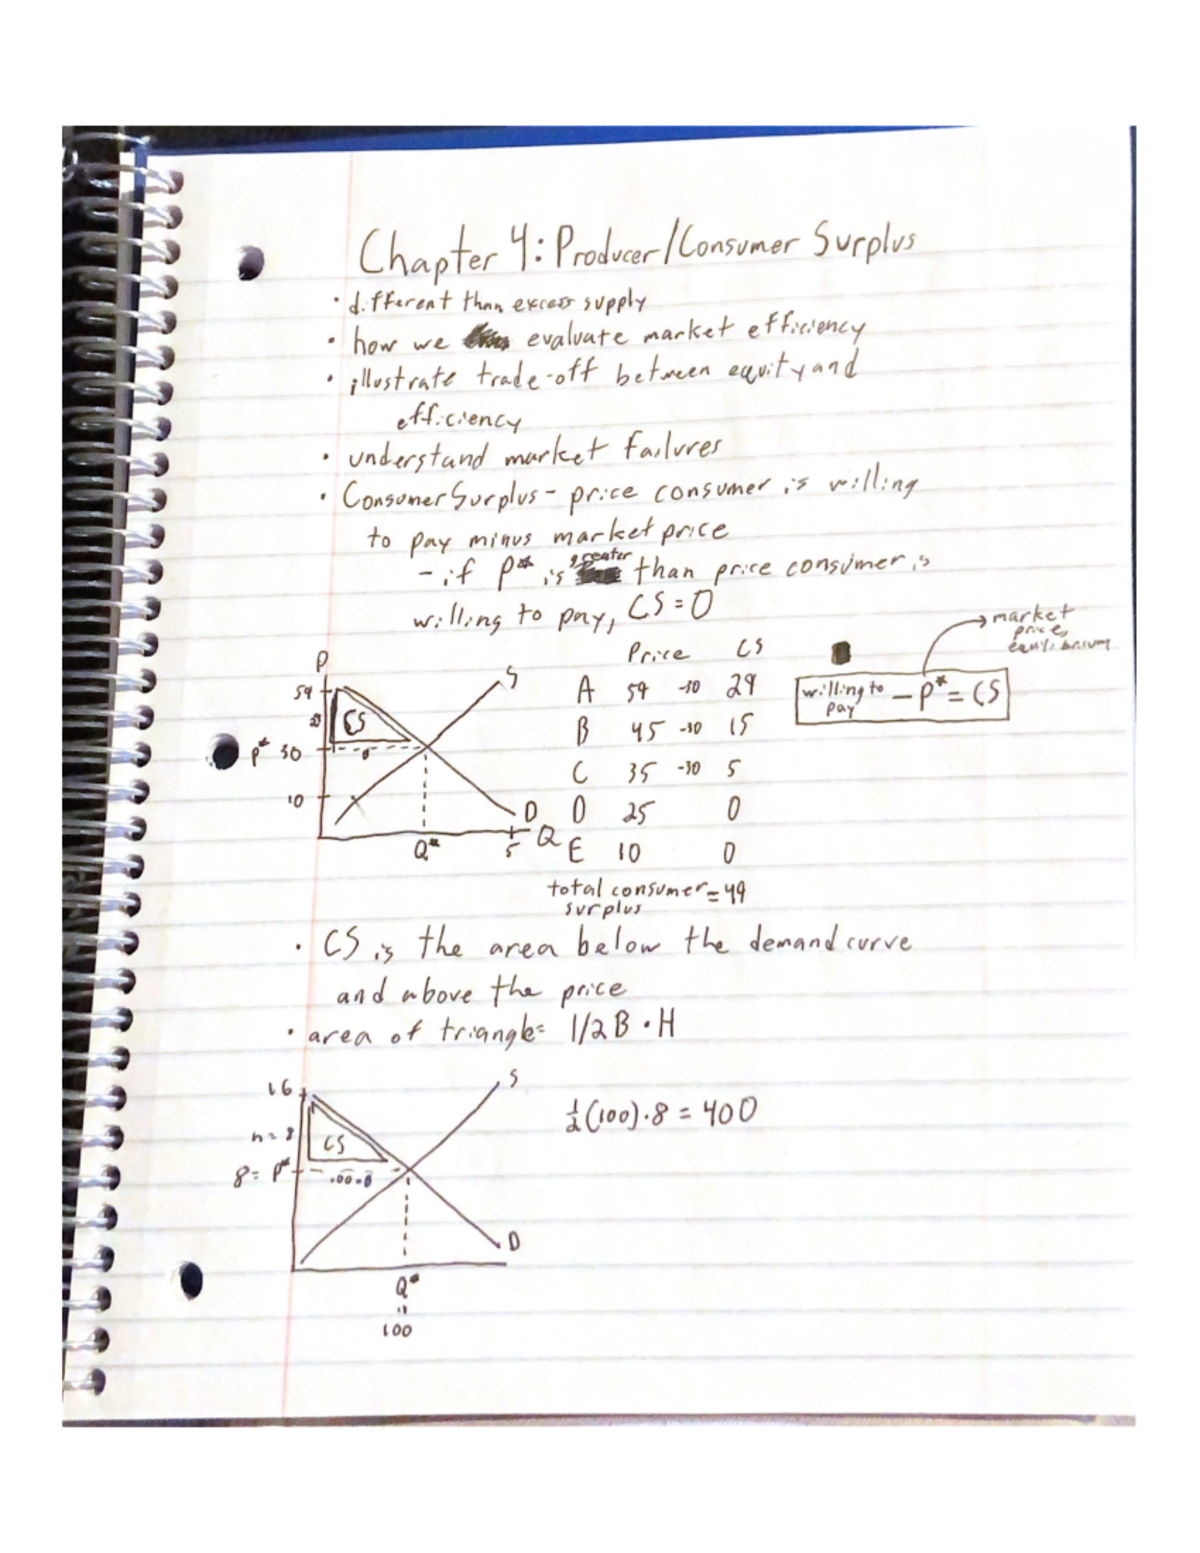 Chapter 4: Producer/Consumer Surplus
• different than excess supply
• how we evaluate market efficiency
• illustrate trade-off between equity and
efficiency
• understand market failures
• Consumer Surplus - price consumer is willing
to pay minus market price
- if P* is greater than price consumer is
willing to pay, CS = 0
market
price,
equilibrium
Price CS
willing to pay - P* = CS
A 59 -30 29
B 45 -30 15
C 35 -30 5
D 25 0
E 10 0
total consumer surplus = 49
P
59
CS
P* 30
10
S
D
Q
Q*
5
• CS is the area below the demand curve
and above the price
• area of triangle = 1/2 B • H
16
S
h = 8
CS
8 = P*
100 = B
D
Q*
"
100
½(100) • 8 = 400